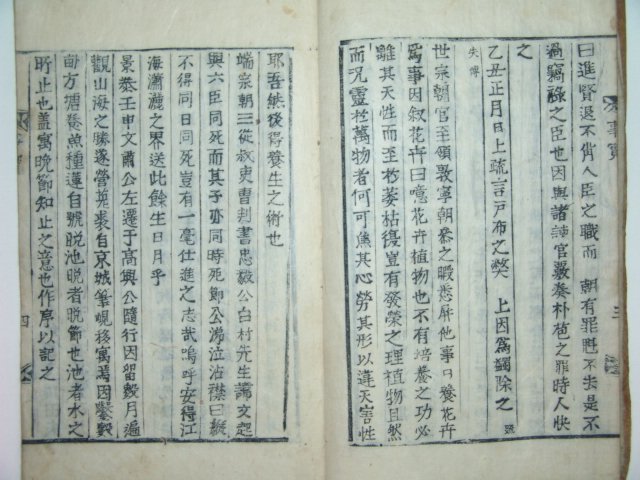 曰進賢退不肖人臣之職而 朝有罪既不失是不
過竊祿之臣也因與諸諫官嚴奏朴苞之罪時人快
之
乙丑正月日上疏言戶布之獘 上因為蠲除之 疏
失傳
世宗朝官至領敦寧朝叅之暇悉屏他事日養花卉
為事因叙花卉曰噫花卉植物也不有培養之功必
離其天性而至於萎枯復豈有發榮之理植物且然
而况靈於萬物者何可焦其心勞其形以違天害性
耶吾然後得養生之術也
端宗朝三從叔吏曹判書忠毅公白村先生諱文起
與六臣同死而其子亦同時死節公涕泣沾襟曰縱
不得同日同死豈有一毫仕進之志哉嗚呼安得江
海瀟灑之界送此餘生日月乎
景泰壬申文肅公左遷于高興公隨行因留數月遍
觀山海之勝遂營菟裘自京城筆峴移寓焉因鑿數
畆方塘養魚種蓮自號晩池晩者晩節也池者水之
所止也盖寓晩節知止之意也作序以記之
事實
三
四